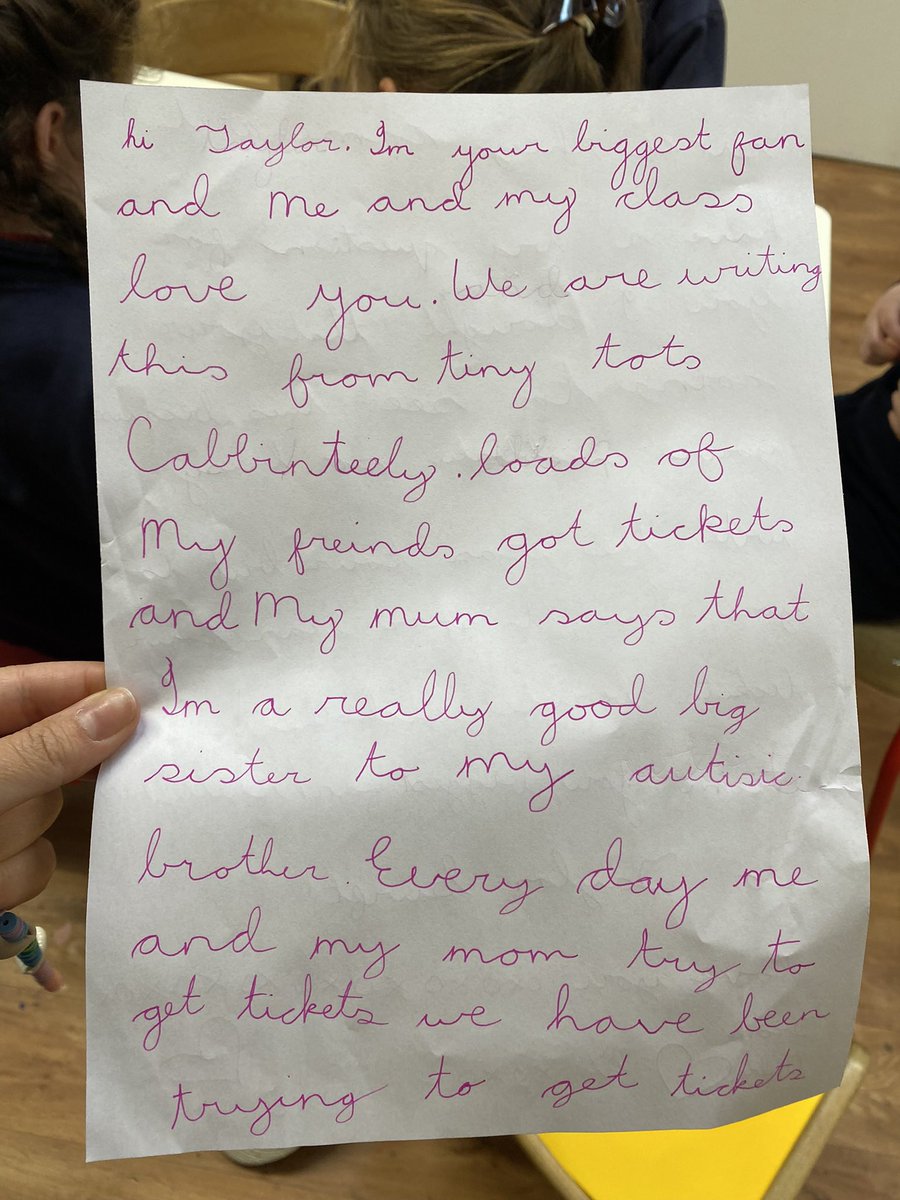 hi Taylor. Im your biggest fan
and me and my class
love you. We are writing
this from tiny tots
Cabbinteely. loads of
My freinds got tickets
and My mum says that
I'm a really good big
sister to my autisic
brother. Every day me
and my mom try to
get tickets we have been
trying to get tickets